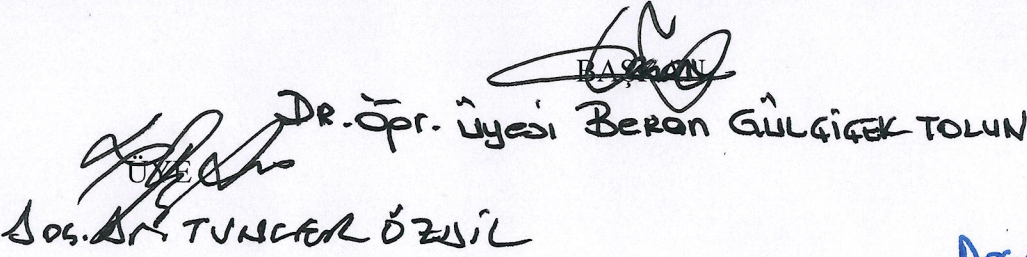 BAŞKAN
Dr. Öğr. Üyesi Beran GÜLÇİÇEK TOLUN
ÜYE
Doç. Dr. TUNCER ÖZDİL
Doç.